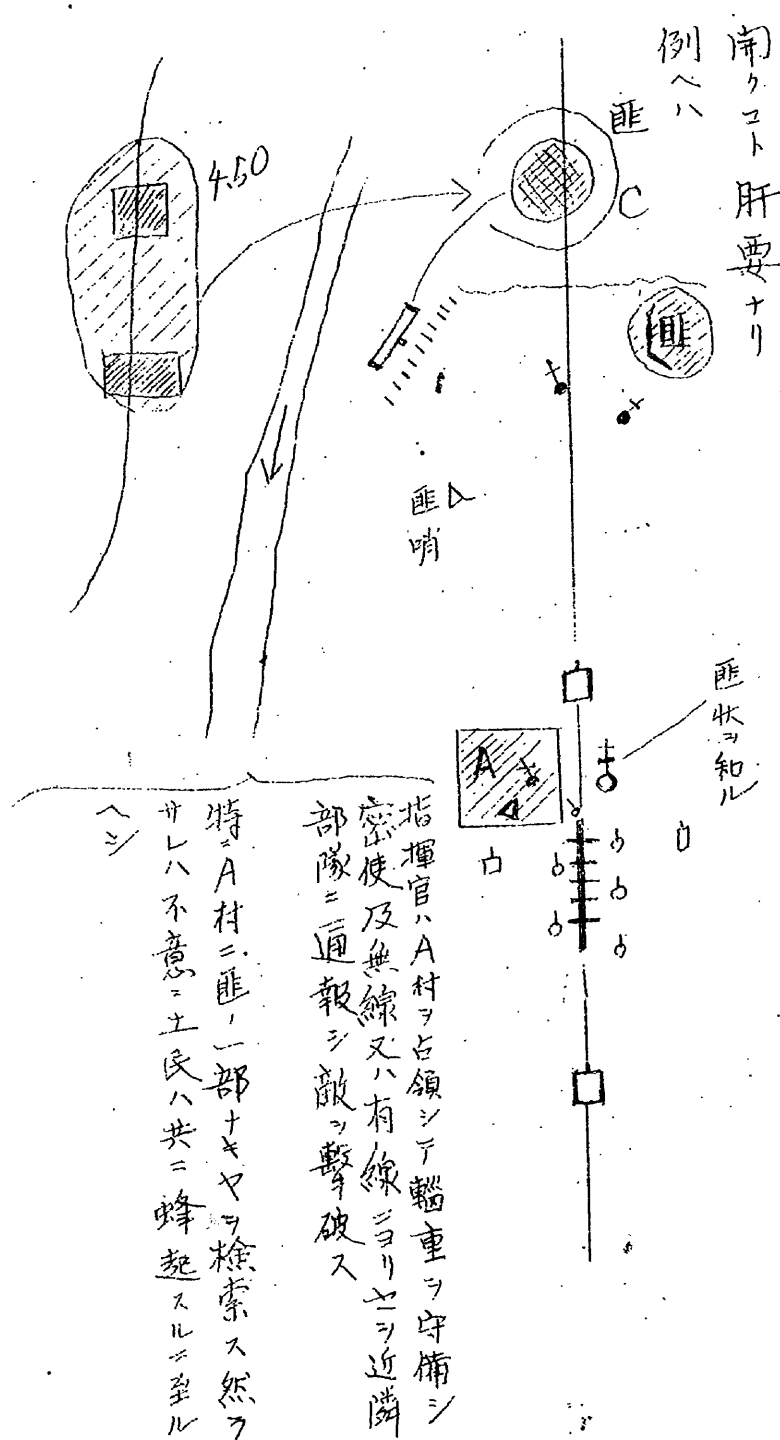 開クコト肝要ナリ
例ヘハ
匪
C
匪
450
匪哨
匪状ヲ知ル
A
指揮官ハA村ヲ占領シテ輜重ヲ守備シ
密使及無線又ハ有線ニヨリ シ近隣
部隊ニ通報シ敵ヲ撃破ス
特ニA村ニ匪ノ一部ナキヤヲ検索ス然ラ
サレハ不意ニ土民ハ共ニ蜂起スルニ至ル
ヘシ